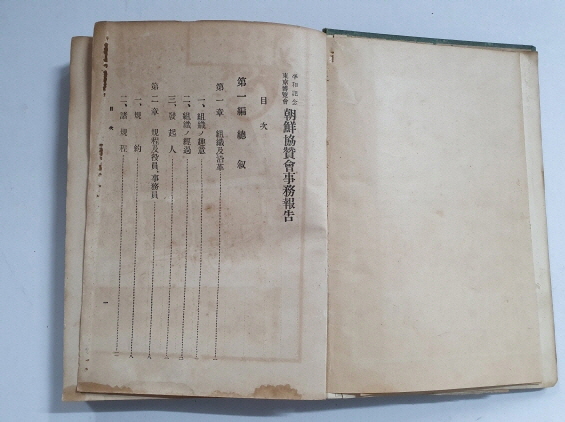 平和記念
東京博覽會
朝鮮協贊會事務報告
目次
第一編 總叙
第一章 組織及沿革
一、組織ノ趣意
二、組織ノ經過
三、發起人
第二章 規程及役員、事務員
一、規約
二、諸規程
目次
一